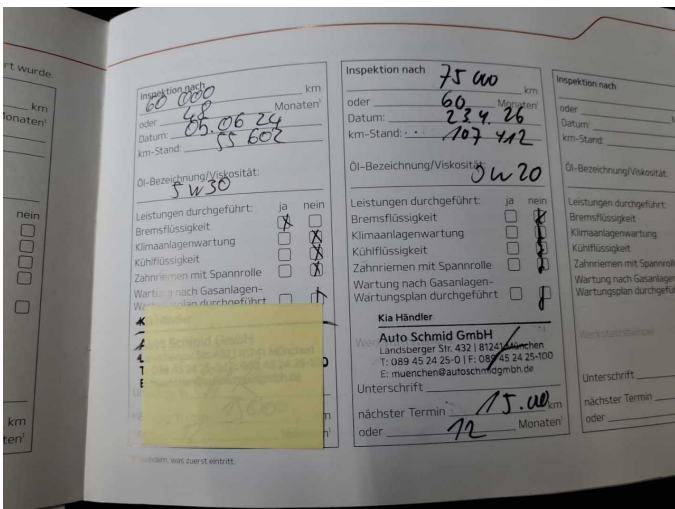 rt wurde.
km
Monaten¹
nein
km
ten¹
Inspektion nach
60 000 km
oder 48 Monaten¹
Datum: 05.06 24
km-Stand: 55 602
Öl-Bezeichnung/Viskosität:
5W30
Leistungen durchgeführt: ja nein
Bremsflüssigkeit
Klimaanlagenwartung
Kühlflüssigkeit
Zahnriemen mit Spannrolle
Wartung nach Gasanlagen-
Wartungsplan durchgeführt
Inspektion nach 75 000 km
oder 60 Monaten¹
Datum: 23 4. 26
km-Stand: 107 412
Öl-Bezeichnung/Viskosität:
0W20
Leistungen durchgeführt: ja nein
Bremsflüssigkeit
Klimaanlagenwartung
Kühlflüssigkeit
Zahnriemen mit Spannrolle
Wartung nach Gasanlagen-
Wartungsplan durchgeführt
Kia Händler
Auto Schmid GmbH
Landsberger Str. 432 | 81241 München
T: 089 45 24 25-0 | F: 089 45 24 25-100
E: muenchen@autoschmidgmbh.de
Unterschrift
nächster Termin 15.000 km
oder 12 Monaten¹
Inspektion nach
oder
Datum:
km-Stand:
Öl-Bezeichnung/Viskosität:
Leistungen durchgeführt:
Bremsflüssigkeit
Klimaanlagenwartung
Kühlflüssigkeit
Zahnriemen mit Spannrolle
Wartung nach Gasanlagen-
Wartungsplan durchgefüh
Werkstattstempel
Unterschrift
nächster Termin
oder
was zuerst eintritt.